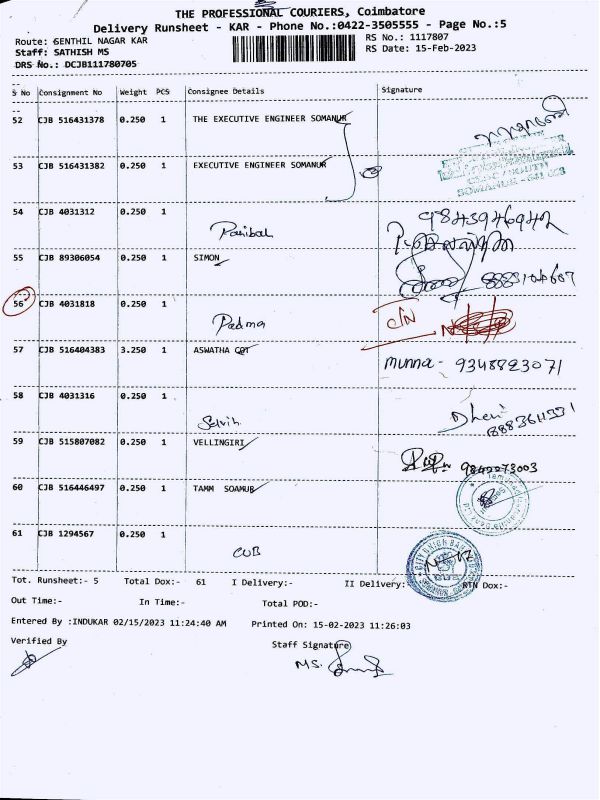 THE PROFESSIONAL COURIERS, Coimbatore
Delivery Runsheet - KAR - Phone No.:0422-3505555 - Page No.:5
Route: SENTHIL NAGAR KAR
RS No.: 1117807
Staff: SATHISH MS
RS Date: 15-Feb-2023
DRS No.: DCJB111780705
S No Consignment No Weight PCS Consignee Details Signature
52 CJB 516431378 0.250 1 THE EXECUTIVE ENGINEER SOMANUR
53 CJB 516431382 0.250 1 EXECUTIVE ENGINEER SOMANUR
SOMANUR
54 CJB 4031312 0.250 1 9843946942
55 CJB 89306054 0.250 1 SIMON
56 CJB 4031818 0.250 1 Padma
57 CJB 516404383 3.250 1 ASWATHA COT munna - 9348823071
58 CJB 4031316 0.250 1
59 CJB 515807082 0.250 1 VELLINGIRI 9842273003
60 CJB 516446497 0.250 1 TAMM SOAMUR
61 CJB 1294567 0.250 1 CUB
Tot. Runsheet:- 5 Total Dox:- 61 I Delivery:- II Delivery: RTN Dox:-
Out Time:- In Time:- Total POD:-
Entered By :INDUKAR 02/15/2023 11:24:40 AM Printed On: 15-02-2023 11:26:03
Verified By Staff Signature
M.S.